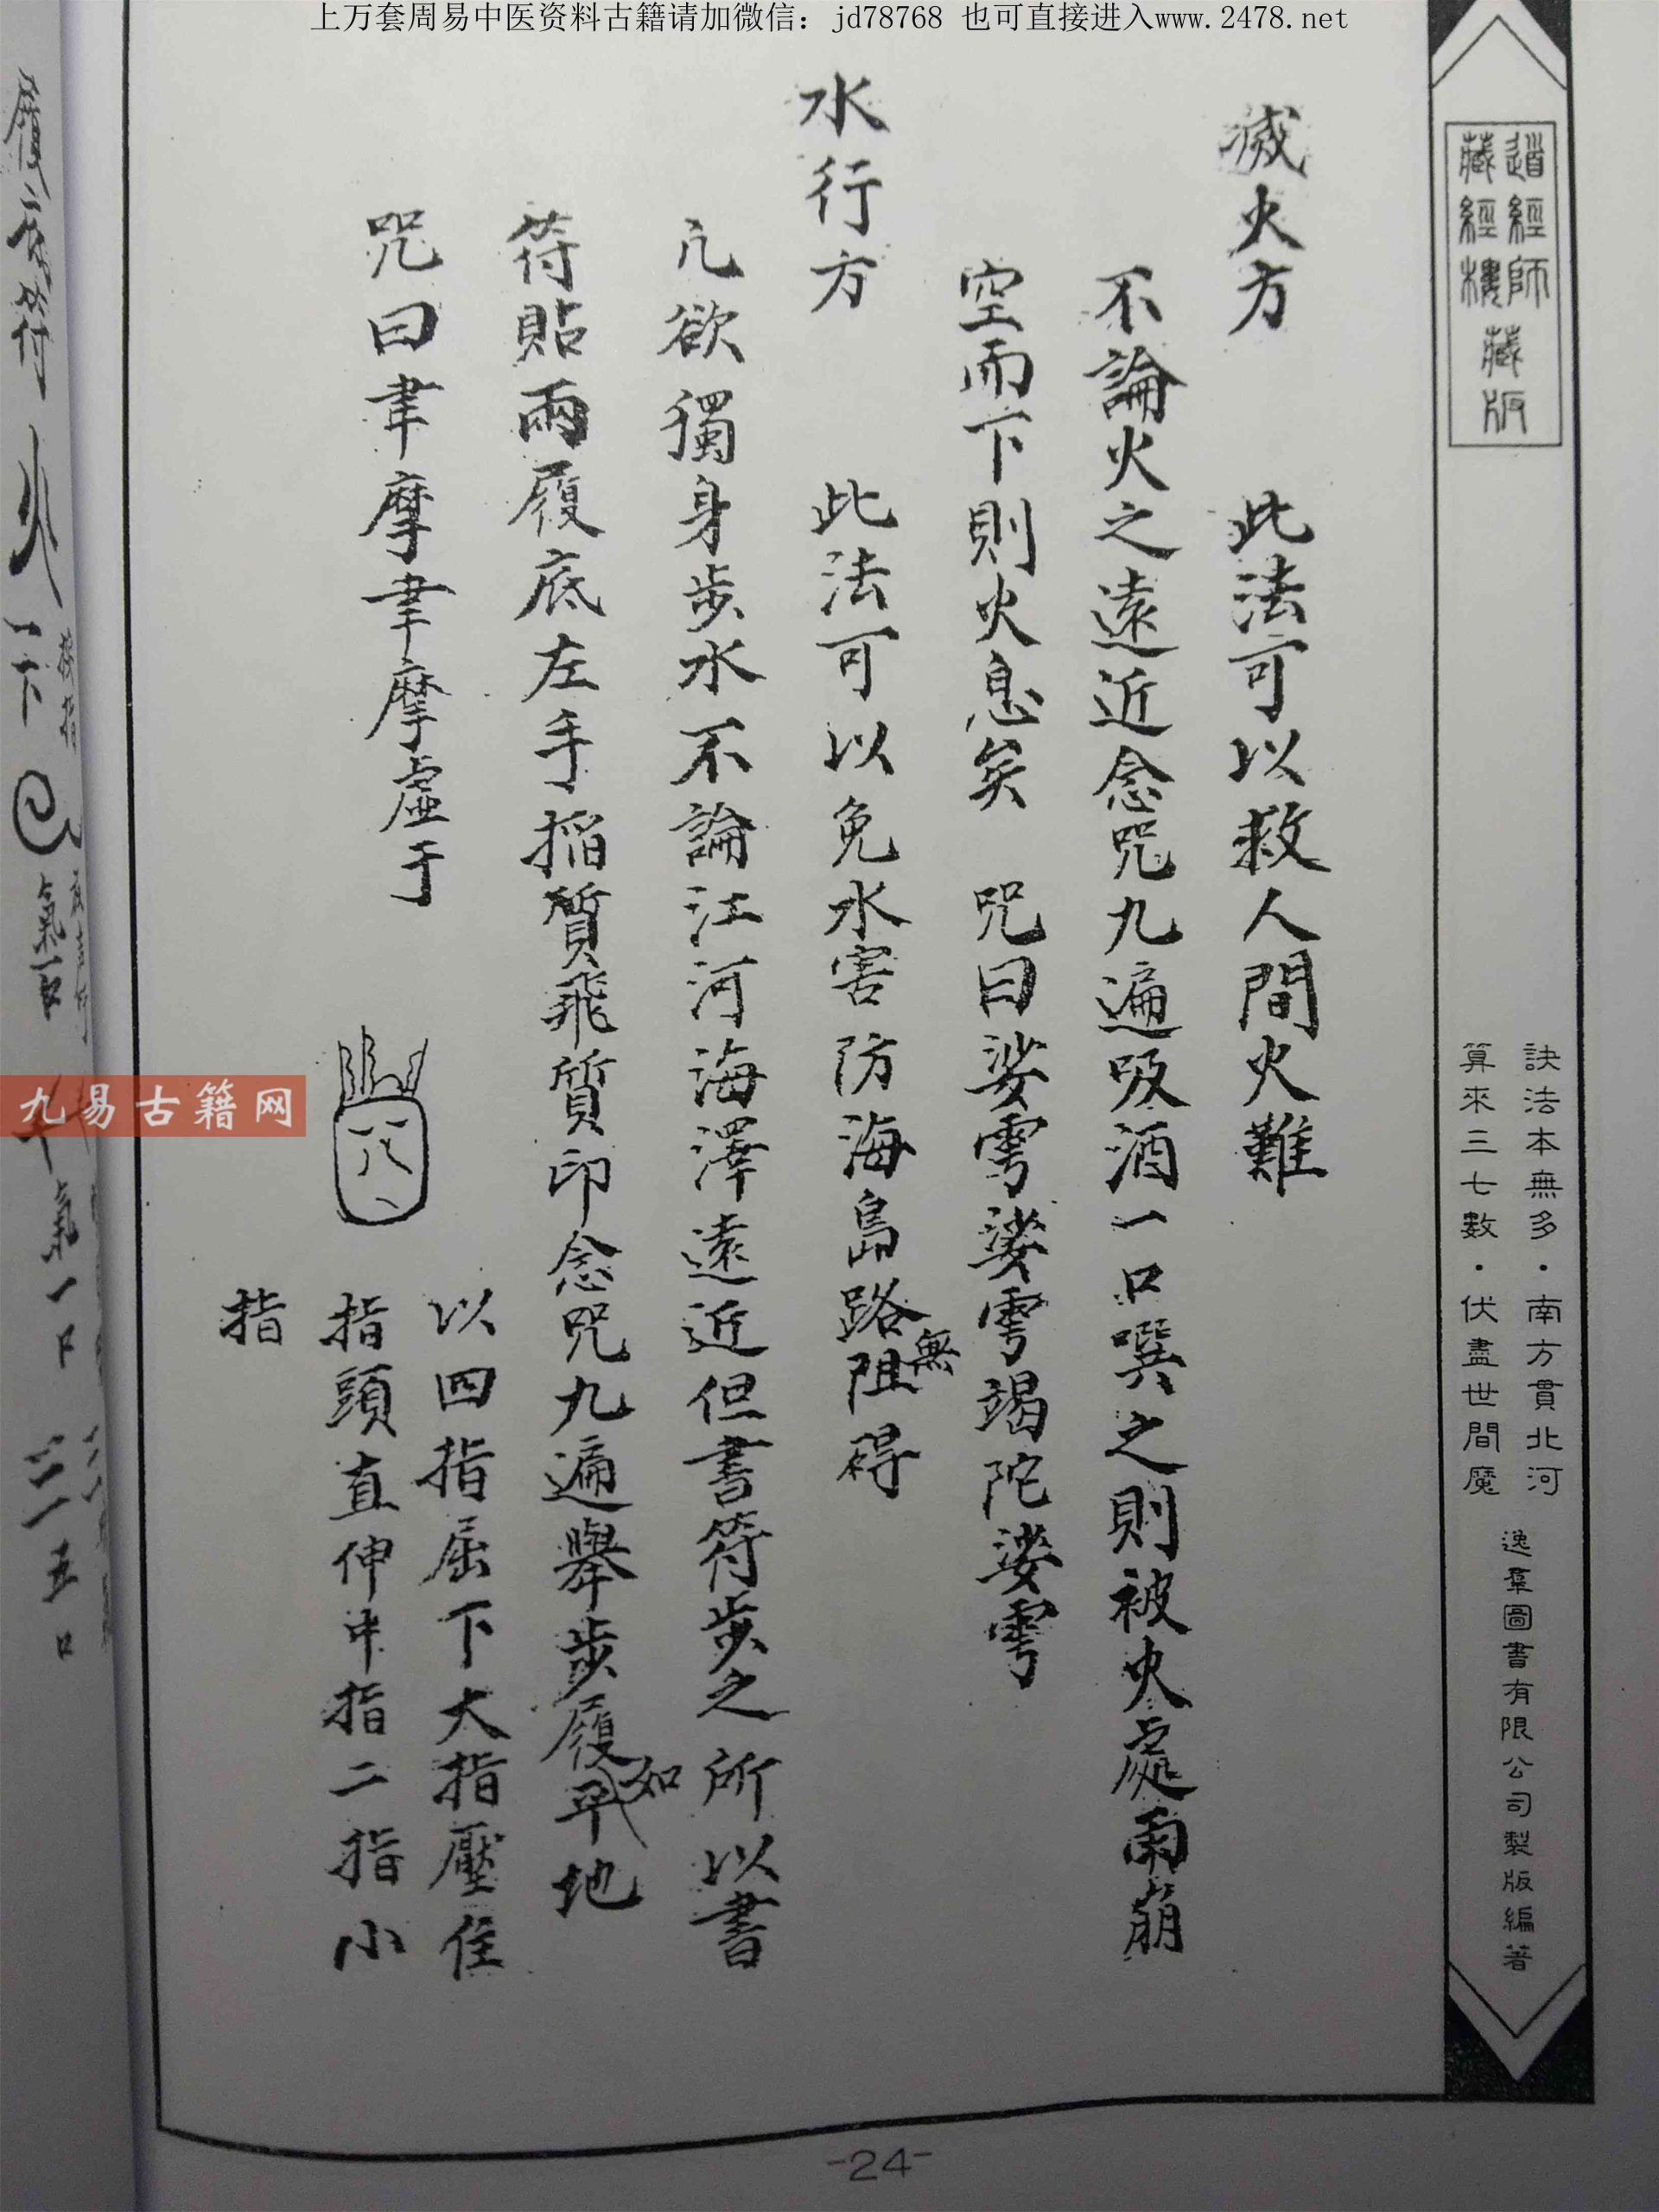 上万套周易中医资料古籍请加微信：jd78768 也可直接进入www.2478.net
道經師
藏經樓
藏版
訣法本無多·南方貫北河
算來三七數·伏盡世間魔
逸羣圖書有限公司製版編著
滅火方 此法可以救人間火難
不論火之遠近念咒九遍吸酒一口噀之則被火處雨崩
空而下則火息矣 咒曰娑雩娑雩竭陀娑雩
水行方 此法可以免水害防海島路無阻碍
凢欲獨身步水不論江河海澤遠近但書符步之所以書
符貼兩履底左手掐質飛質印念咒九遍舉步履如平地
咒曰韋摩韋摩虛于
以四指屈下大指壓住
指頭直伸中指二指小
指
履底符
一下
氣一口
三一五口
九易古籍网
-24-